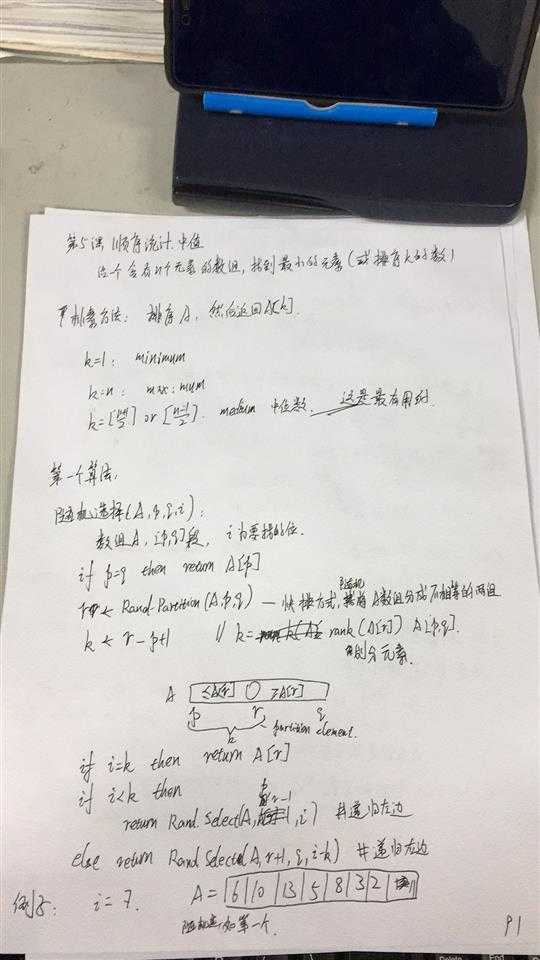 第5课 顺序统计.中值
给个含有n个元素的数组,找到最小的元素(或排序k的数)
朴素方法: 排序A, 然后返回A[k].
k=1: minimum
k=n: maximum
k=[n+1/2] or [n-1/2]. medium 中位数. 这是最有用的
第一个算法.
随机选择(A,p,q,i):
数组A, [p,q]段, i为要找的位.
if p=q then return A[p]
r ← Rand-Partition(A,p,q) — 快排方式,随机 A数组分成不相等的两组
k ← r-p+1 // k= rank(A[r]) A[p,q].
划分元素.
A ≤A[r] ≥A[r]
p r q
k partition element.
if i=k then return A[r]
if i<k then
return Rand Select(A, p, r-1, i) #递归左边
else return Rand Select(A, r+1, q, i-k) #递归左边
例子: i=7. A= 6 10 13 5 8 3 2 11
随机选如第一个.
P1
Delete End